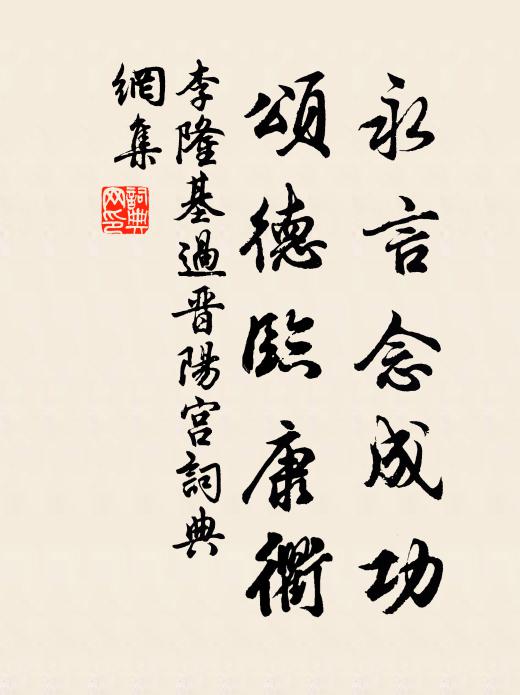 永言念成功
頌德臨康衢
李隆基過晋陽宫詞典
網集
詞典
网印